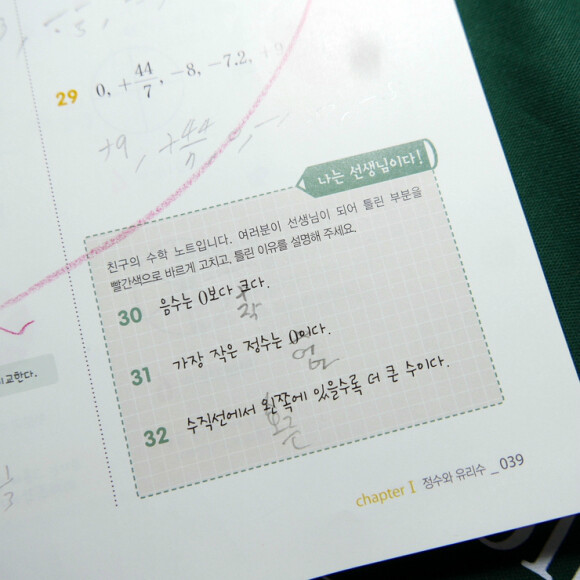 29 0, +44/7, -8, -7.2, +9
+9, +44/7, 0, -
나는 선생님이다!
친구의 수학 노트입니다. 여러분이 선생님이 되어 틀린 부분을
빨간색으로 바르게 고치고, 틀린 이유를 설명해 주세요.
30 음수는 0보다 크다.
작
31 가장 작은 정수는 0이다.
없
32 수직선에서 왼쪽에 있을수록 더 큰 수이다.
오른
교한다.
1/3
chapter I 정수와 유리수 _ 039